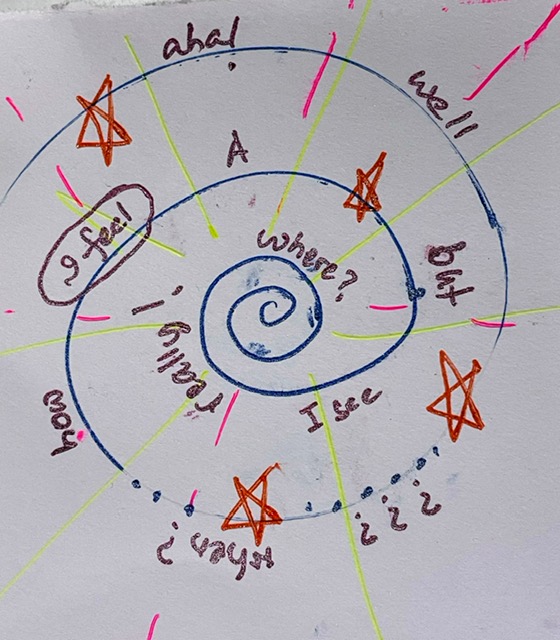 where?
I see
really!
A
but
when?
how
I feel
aha!
well
???